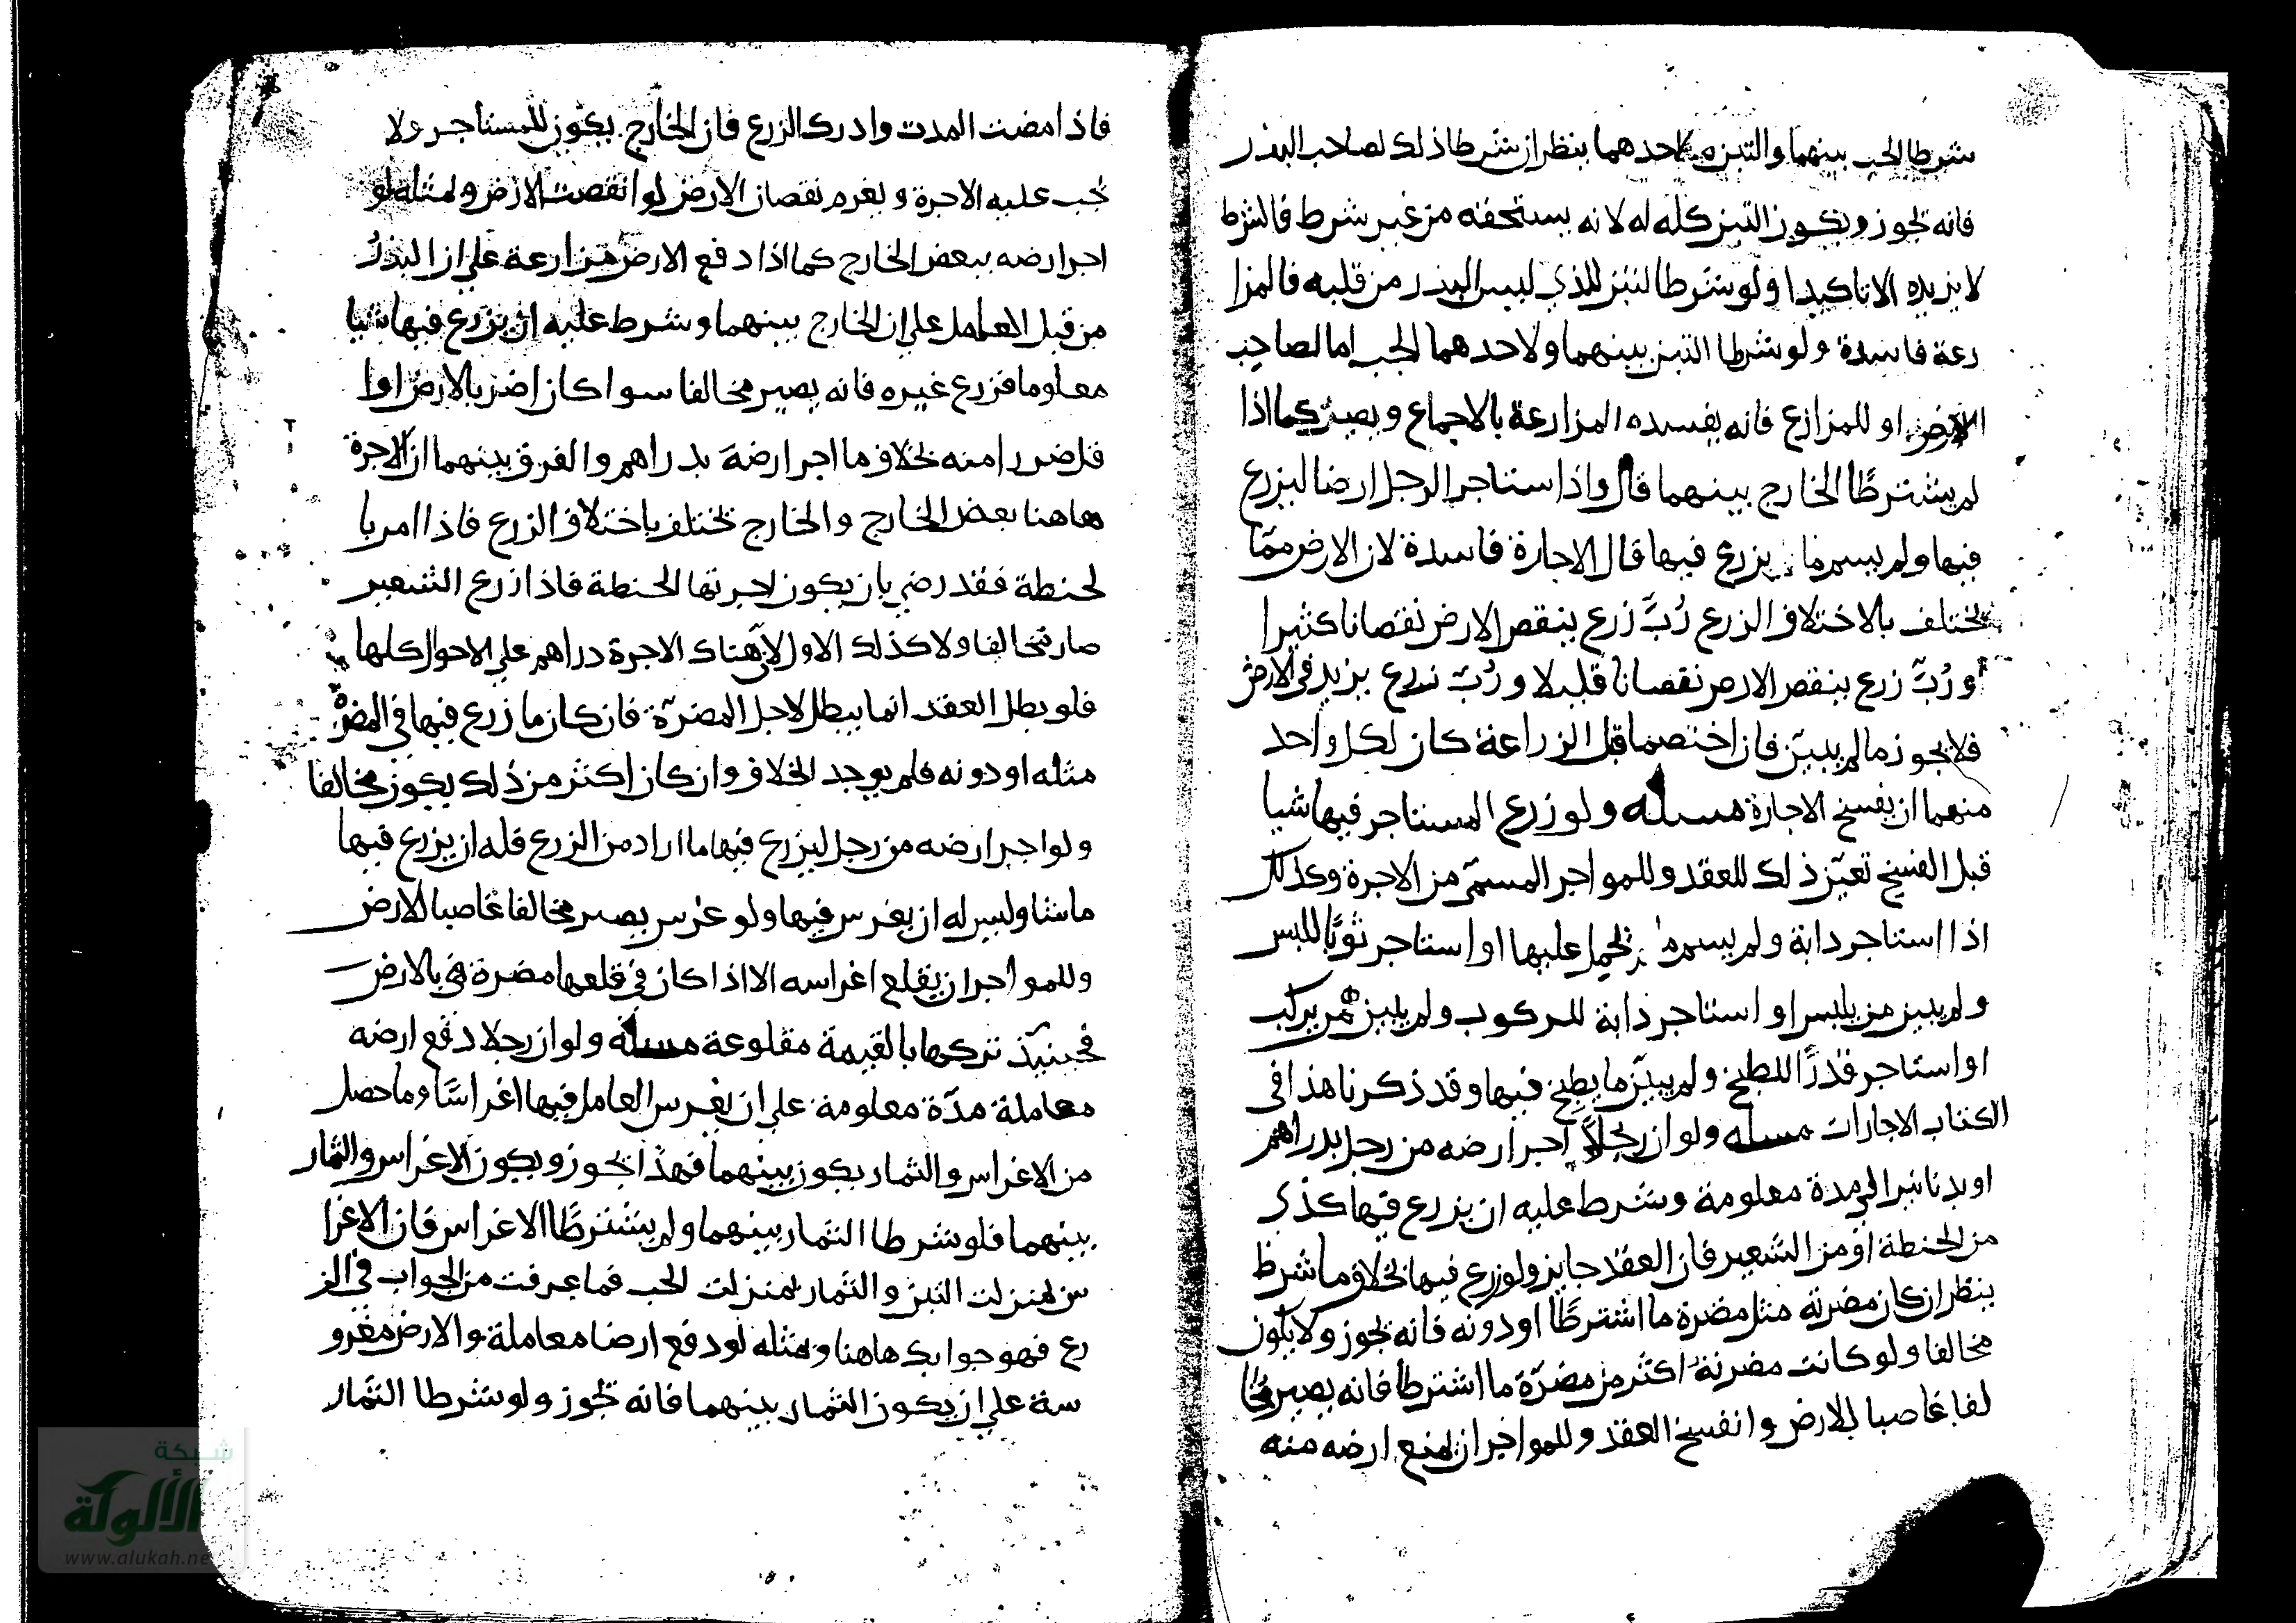 شرطا الحب بينهما والتبن لاحدهما ينظر ان شرطا ذلك لصاحب البذر
فانه يجوز ويكون التبن كله له لانه يستحقه من غير شرط فالشرط
لا يزيده الا تاكيدا ولو شرطا التبن للذي ليس البذر من قلبه فالمزا
رعة فاسدة ولو شرطا التبن بينهما ولاحدهما الحب اما لصاحب
الارض او للمزارع فانه يفسده المزارعة بالاجماع ويصير كما اذا
لم يشترطا الخارج بينهما قال واذا استاجر الرجل ارضا ليزرع
فيها ولم يسم ما يزرع فيها قال الاجارة فاسدة لان الارض مما
يختلف بالاختلاف الزرع رُبَّ زرع ينقص الارض نقصانا كثيرا
ورُبَّ زرع ينقص الارض نقصانا قليلا ورُبَّ زرع يزيد في الارض
فلا يجوز ما لم يبين فان اختصما قبل الزراعة كان لكل واحد
منهما ان يفسخ الاجارة مسله ولو زرع المستاجر فيها شيا
قبل الفسخ تعيّن ذلك للعقد وللمواجر المسمّى من الاجرة وكذلك
اذا استاجر دابة ولم يسم ما يحمل عليها او استاجر ثوبًا للبس
ولم يبين من يلبس او استاجر دابة للركوب ولم يبين من يركب
او استاجر قدرًا للطبخ ولم يبين ما يطبخ فيها وقد ذكرنا هذا في
الكتاب الاجارات مسله ولو ان رجلاً اجر ارضه من رجل بدراهم
او بدنانير الى مدة معلومة وشرط عليه ان يزرع فيها كذى
من الحنطة او من الشعير فان العقد جايز ولو زرع فيها بخلاف ما شرط
ينظر ان كان مضرته مثل مضرة ما اشترطا او دونه فانه يجوز ولا يكون
مخالفا ولو كانت مضرته اكثر من مضرّة ما اشترطا فانه يصير مخا
لفا غاصبا للارض وانفسخ العقد وللمواجر ان يمنع ارضه منه
فاذا مضت المدت وادرك الزرع فان الخارج يكون للمستاجر ولا
يجب عليه الاجرة ويغرم نقصان الارض لو انقصت الارض ولمثله لو
اجر ارضه ببعض الخارج كما اذا دفع الارض مزارعة على ان البذرُ
من قبل العامل على ان الخارج بينهما وشرط عليه ان يزرع فيها شيا
معلوما فزرع غيره فانه يصير مخالفا سوا كان اضر بالارض او ا
قل ضررا منه بخلاف ما اجر ارضهَ بدراهم والفرق بينهما ان الاجرة
هاهنا بعض الخارج والخارج يختلف باختلاف الزرع فاذا امر با
لحنطة فقد رضي بان يكون اجرتها الحنطة فاذا زرع الشعير
صار مخالفا ولا كذلك الاول لان هناك الاجرة دراهم على الاحوال كلها
فلو بطل العقد انما يبطل لاجل المضرّة فان كان ما زرع فيها في المضرّة
مثله او دونه فلم يوجد الخلاف وان كان اكثر من ذلك يكون مخالفا
ولو اجر ارضه من رجل ليزرع فيها ما اراد من الزرع فله ان يزرع فيها
ما شا وليس له ان يغرس فيها ولو غرس يصير مخالفا غاصبا للارض
وللمواجر ان يقلع اغراسه الا اذا كان في قلعها مضرة في بالارض
فحينئذ تركها بالقيمة مقلوعة مسله ولو ان رجلا دفع ارضه
معاملة مدّة معلومة على ان يغرس العامل فيها اغراسًا وما حصل
من الاغراس والثمار يكون بينهما فهذا يجوز ويكون الاغراس والثمار
بينهما فلو شرطا الثمار بينهما ولم يشترطا الاغراس فان الاغرا
س بمنزلت التبن والثمار بمنزلت الحب فما عرفت من الجواب في الز
رع فهو جوابك هاهنا ومثله لو دفع ارضا معاملة والارض مغرو
سة على ان يكون الثمار بينهما فانه يجوز ولو شرطا الثمار
شبكة
الألوكة
www.alukah.ne